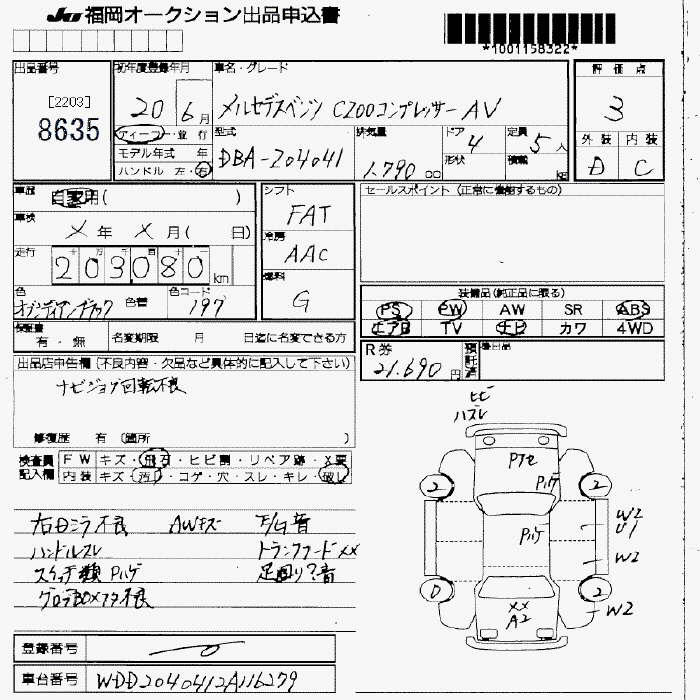 JU 福岡オークション出品申込書
*1001158322*
出品番号
[2203]
8635
初年度登録年月
20 6月
ディーラー・並行
モデル年式 年
ハンドル 左・右
車名・グレード
メルセデスベンツ C200コンプレッサー AV
型式
DBA-204041
排気量
1.790 cc
ドア
4
形状
定員
5人
積載
kg
評価点
3
外装 内装
D C
車歴
自家用( )
車検
メ年 メ月( 日)
走行
203080 km
色
オブシディアンブラック
色替
色コード
197
シフト
FAT
冷房
AAC
燃料
G
セールスポイント (正常に機能するもの)
装備品(純正品に限る)
PS PW AW SR ABS
エアB TV ナビ カワ 4WD
保証書
有・無
名変期限 月 日迄に名変できる方
R券
21.690円
預託済
後日品
出品店申告欄 (不良内容・欠品など具体的に記入して下さい)
ナビジョグ回転不良
修復歴 有 (箇所 )
検査員記入欄
FW キズ・飛石・ヒビ割・リペア跡・X要
内装 キズ・汚れ・コゲ・穴・スレ・キレ・破レ
右ミラ不良 AWキズ F/G音
ハンドルスレ トランクフードXX
スイッチ類Pハゲ 足回り?音
グロブBOXフタ不良
ヒビ
ハズレ
Pアセ
Pハゲ
2 2
Pハゲ
W2
U1
W2
D 2
W2
XX
A2
登録番号
車台番号
WDD2040412A116279